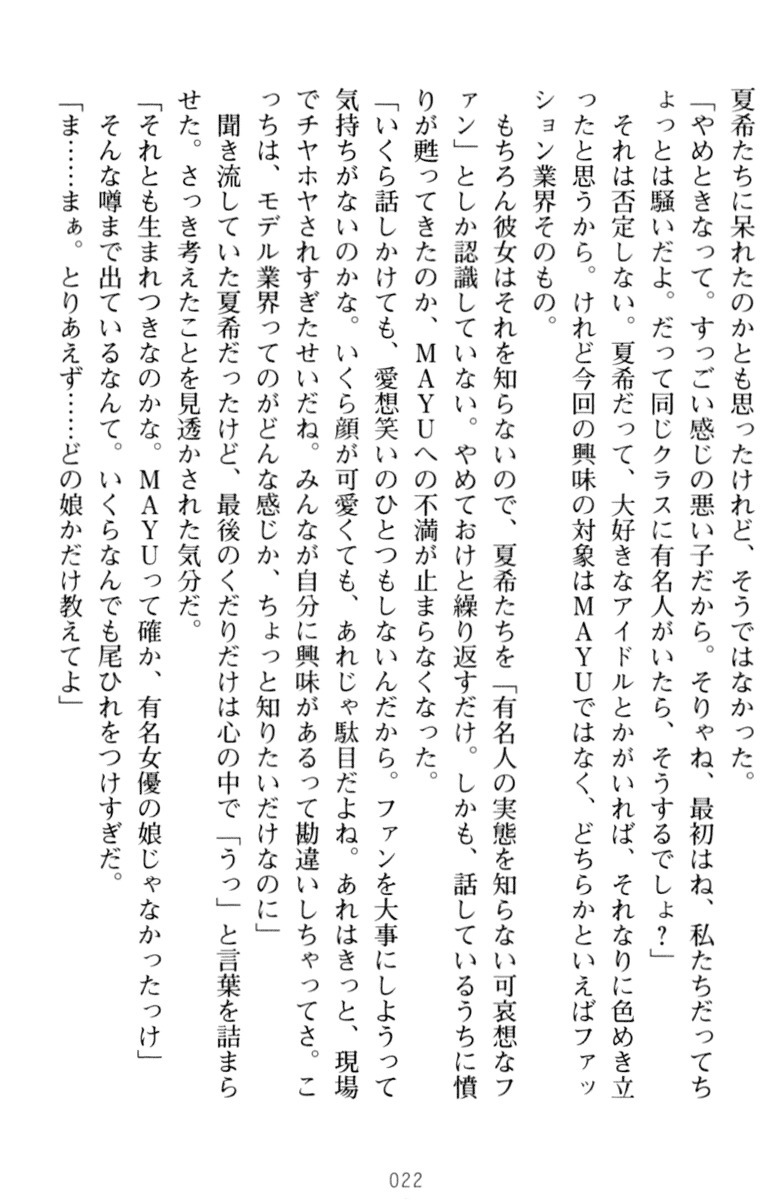 夏希たちに呆れたのかとも思ったけれど、そうではなかった。
「やめときなって。すっごい感じの悪い子だから。そりゃね、最初はね、私たちだってち
ょっとは騒いだよ。だって同じクラスに有名人がいたら、そうするでしょ？」
　それは否定しない。夏希だって、大好きなアイドルとかがいれば、それなりに色めき立
ったと思うから。けれど今回の興味の対象はＭＡＹＵではなく、どちらかといえばファッ
ション業界そのもの。
　もちろん彼女はそれを知らないので、夏希たちを「有名人の実態を知らない可哀想なフ
ァン」としか認識していない。やめておけと繰り返すだけ。しかも、話しているうちに憤
りが甦ってきたのか、ＭＡＹＵへの不満が止まらなくなった。
「いくら話しかけても、愛想笑いのひとつもしないんだから。ファンを大事にしようって
気持ちがないのかな。いくら顔が可愛くても、あれじゃ駄目だよね。あれはきっと、現場
でチヤホヤされすぎたせいだね。みんなが自分に興味があるって勘違いしちゃってさ。こ
っちは、モデル業界ってのがどんな感じか、ちょっと知りたいだけなのに」
　聞き流していた夏希だったけど、最後のくだりだけは心の中で「うっ」と言葉を詰まら
せた。さっき考えたことを見透かされた気分だ。
「それとも生まれつきなのかな。ＭＡＹＵって確か、有名女優の娘じゃなかったっけ」
　そんな噂まで出ているなんて。いくらなんでも尾ひれをつけすぎだ。
「ま……まぁ。とりあえず……どの娘かだけ教えてよ」
022